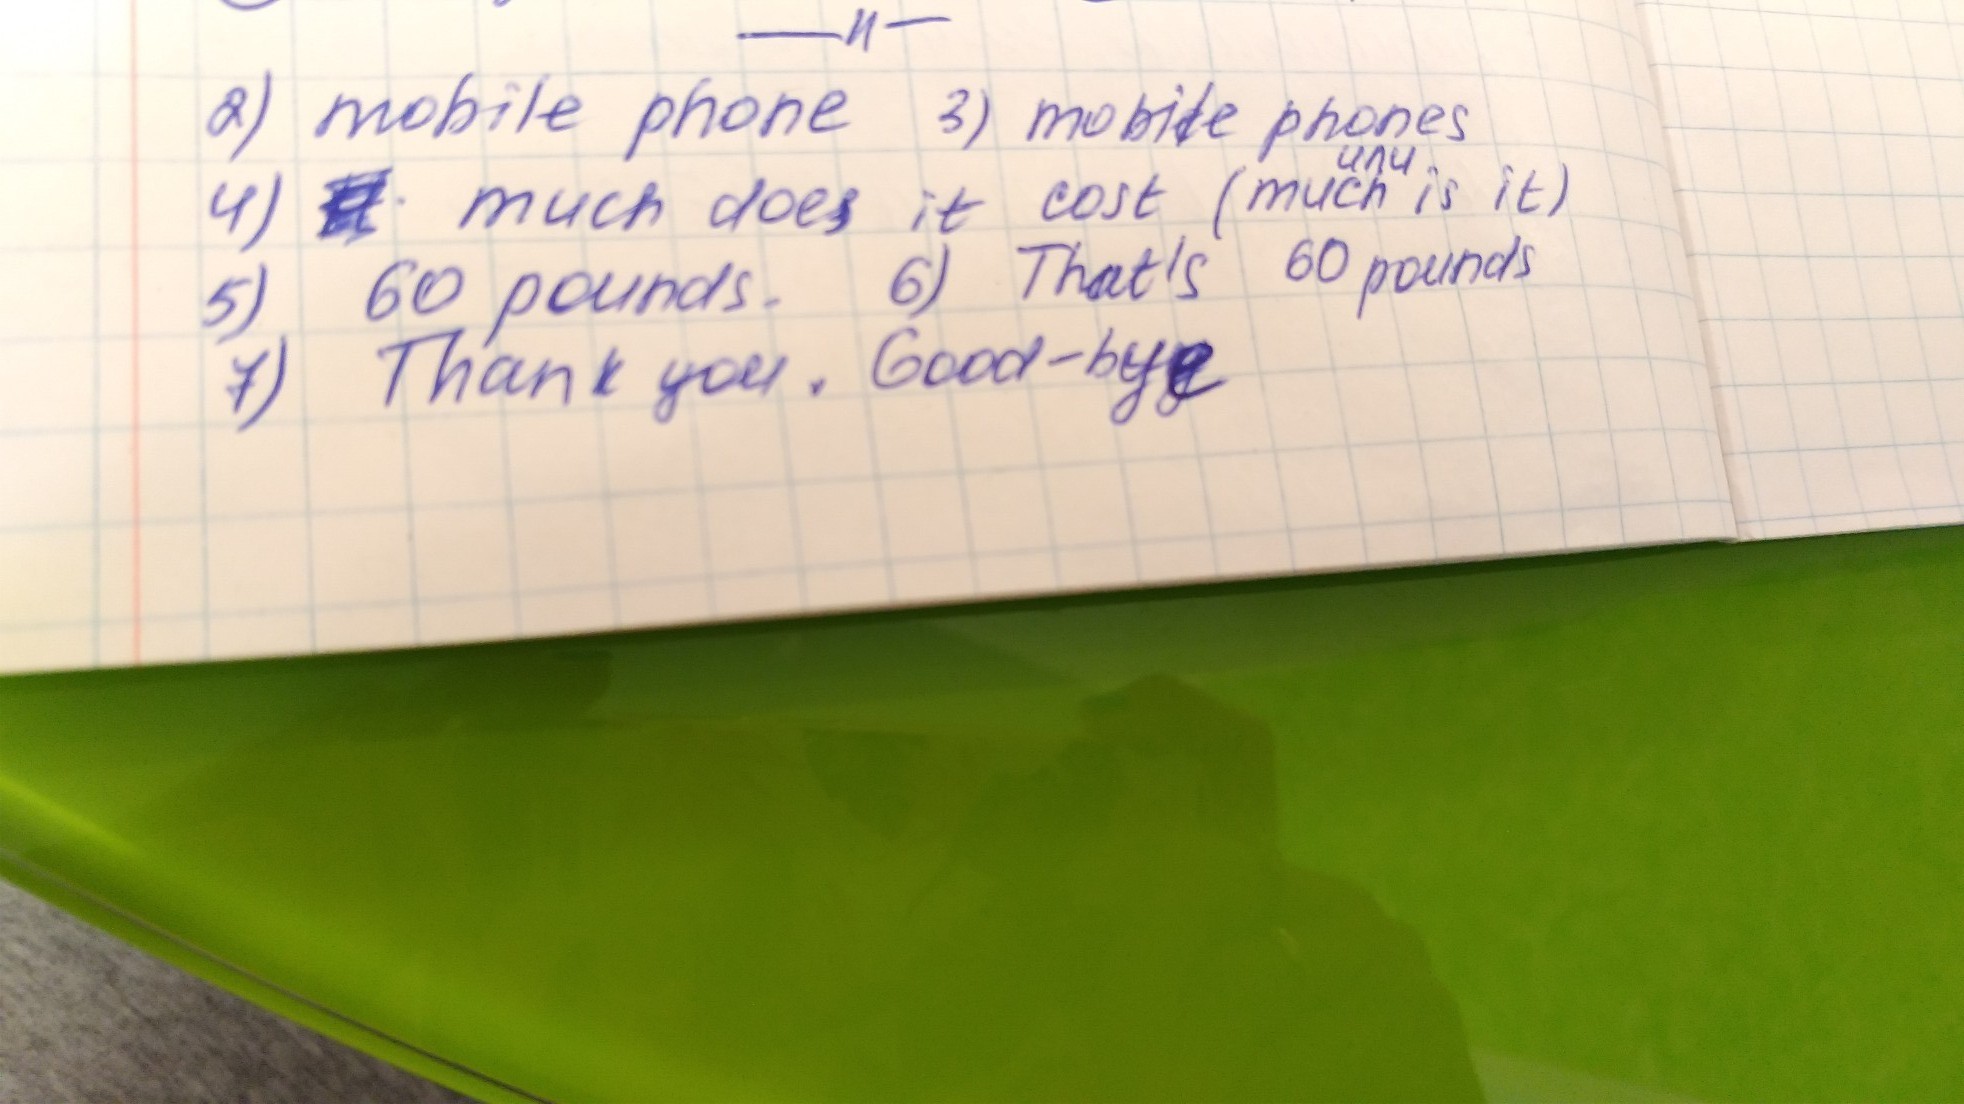 —"—
2) mobile phone 3) mobile phones
4) much does it cost (или much is it)
5) 60 pounds. 6) That's 60 pounds
7) Thank you. Good-bye